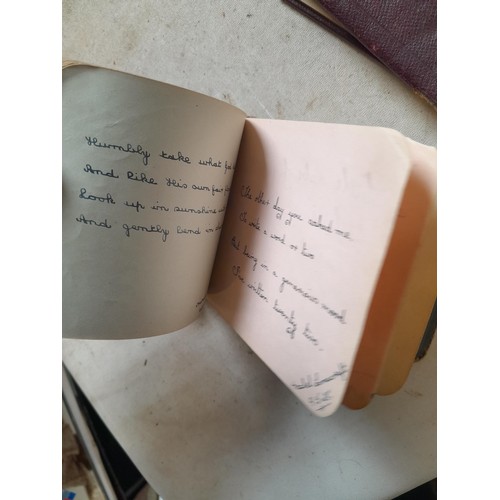 Humbly take what
And like His sun
Look up in sunshine
And gently bend in
The other day you asked me
To write a word or two
But being in a generous mood
I've written twenty two.